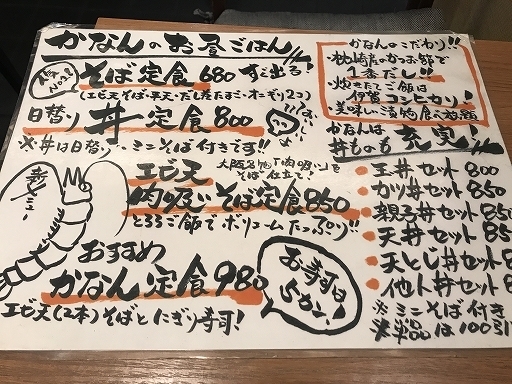 かなんのお昼ごはん
人気No.1
そば定食 680 すぐ出る!
(エビ天そば・平天・だし巻たまご・オニギリ2コ)
日替り 丼定食 800
※丼は日替り・ミニそば付きです!!
エビ天
大阪名物「肉吸い」をそば仕立て!
肉吸いそば定食 850
とろろご飯でボリュームたっぷり!!
新メニュー
おすすめ
かなん定食 980
お寿司は5カン!
エビ天(2本)そばとにぎり寿司!
かなんのこだわり!!
・枕崎産のかつお節で
1番だし!!
・炊きたてご飯は
伊賀コシヒカリ!
・美味しいご漬物食べ放題
かなんは
丼ものも充実!
玉丼セット 800
カツ丼セット 850
親子丼セット 850
天丼セット 85
天とじ丼セット 8
他人丼セット 8
※ミニそば付き
※単品は100引